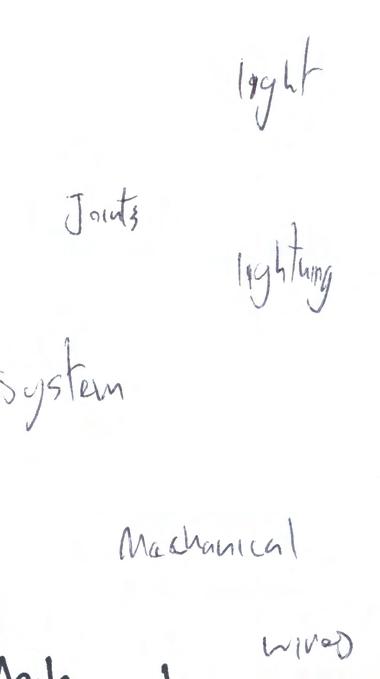 light
Joints
lightning
system
Mechanical
wired